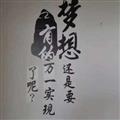 梦想还是要
有的万一实现
了呢?